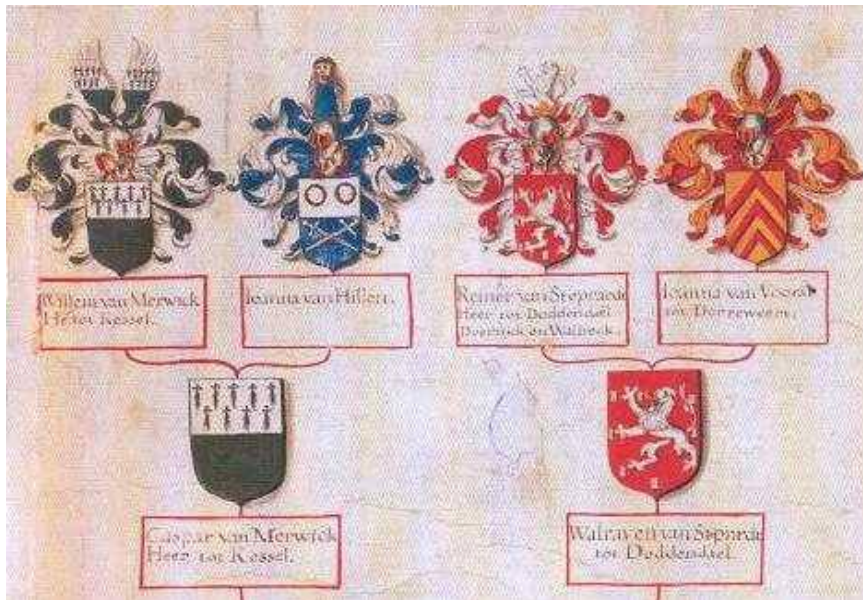 Willem van Merwick
Heer tot Kessel.
Ioanna van Hillen.
Reiner van Stepraedt
Heer tot Doddendael
en Walbeck.
Ioanna van Voorst
tot
Caspar van Merwick
Heer tot Kessel.
Walraven van
tot Doddendael.